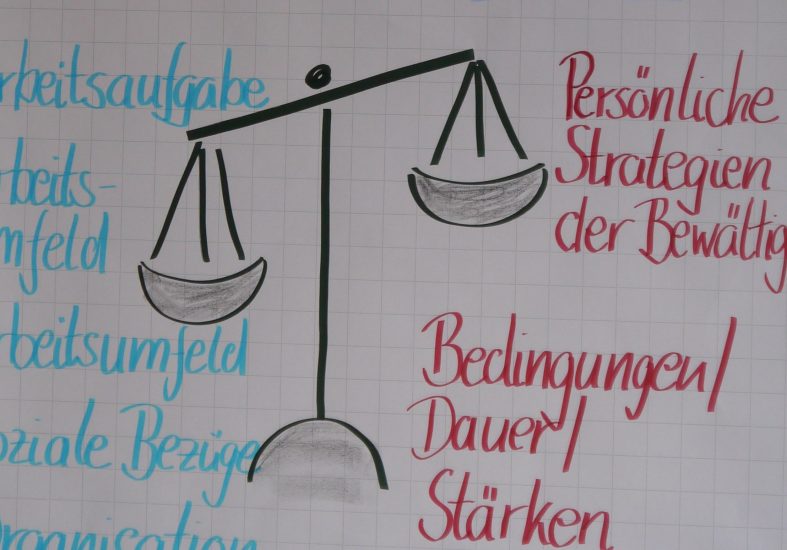 rbeitsaufgabe
rbeits-
mfeld
rbeitsumfeld
oziale Bezüge
Organisation
Persönliche
Strategien
der Bewältig
Bedingungen/
Dauer/
Stärken